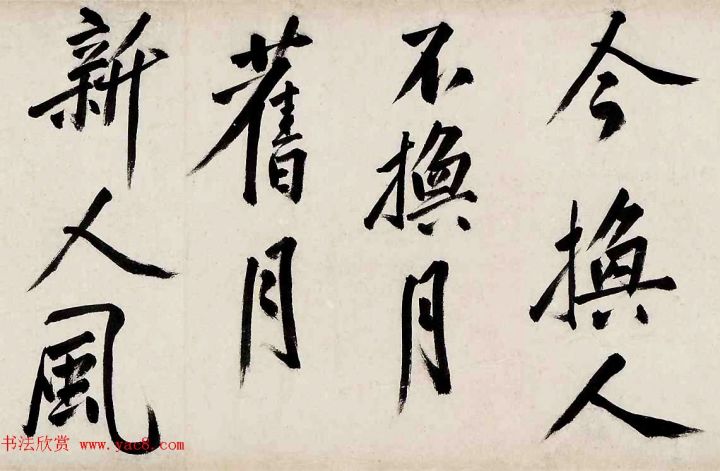 今換人
不換月
舊月
新人風
书法欣赏 www.yac8.com